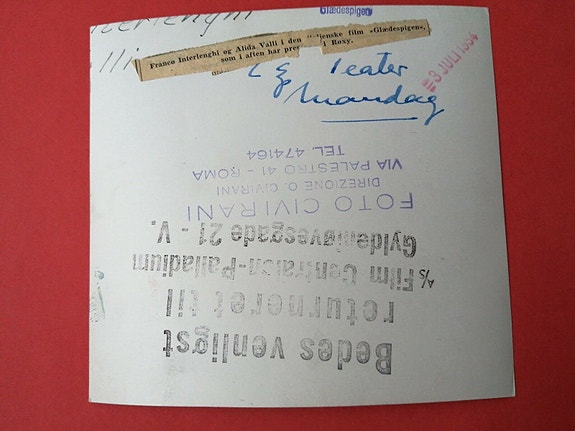 Glædespigen
Franco Interlenghi og Alida Valli i den italienske film «Glædespigen»,
som i aften har pre i Roxy.
Teater
Mandag
-3 JULI 1954
FOTO CIVIRANI
DIREZIONE O. CIVIRANI
VIA PALESTRO 41 - ROMA
TEL. 474164
Bedes venligst
returneret til
A/s Film Centralen-Palladium
Gyldenløvesgade 21 - V.